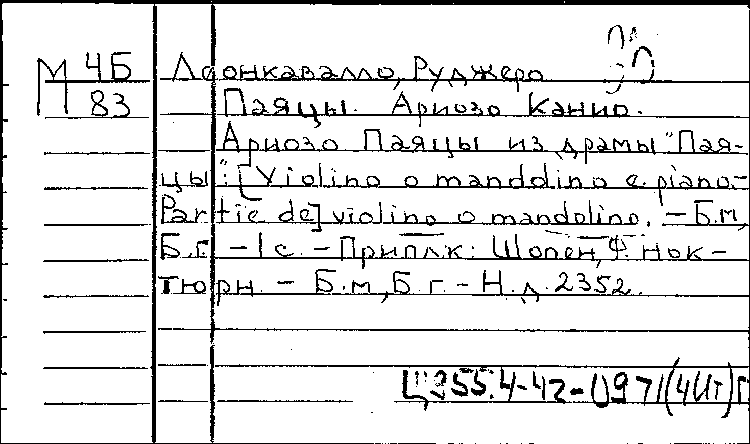 М 4Б Леонкавалло, Руджеро
83 Паяцы. Ариозо Канио.
Ариозо Паяцы из драмы "Пая-
цы": [Violino o mandolino e piano.-
Partie de] violino o mandolino. - Б.м,
Б.г. - 1 с. - Прилж: Шопен, Ф. Нок-
тюрн. - Б.м, Б.г. - Н.д. 2352.
Щ955.4-42-097/(4Ит)